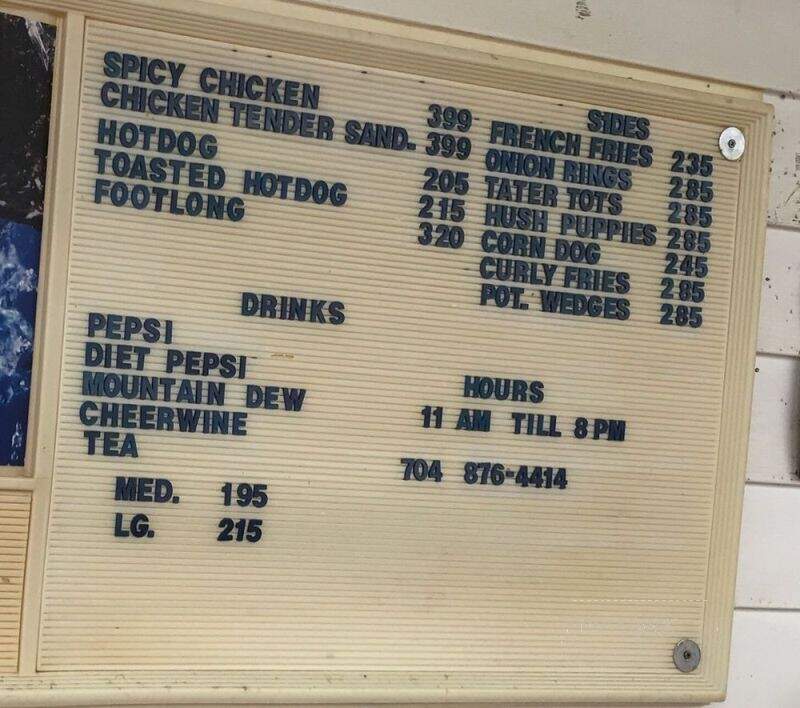 SPICY CHICKEN 399
CHICKEN TENDER SAND. 399
HOTDOG 205
TOASTED HOTDOG 215
FOOTLONG 320
SIDES
FRENCH FRIES 235
ONION RINGS 285
TATER TOTS 285
HUSH PUPPIES 285
CORN DOG 245
CURLY FRIES 285
POT. WEDGES 285
DRINKS
PEPSI
DIET PEPSI
MOUNTAIN DEW
CHEERWINE
TEA
MED. 195
LG. 215
HOURS
11 AM TILL 8 PM
704 876-4414